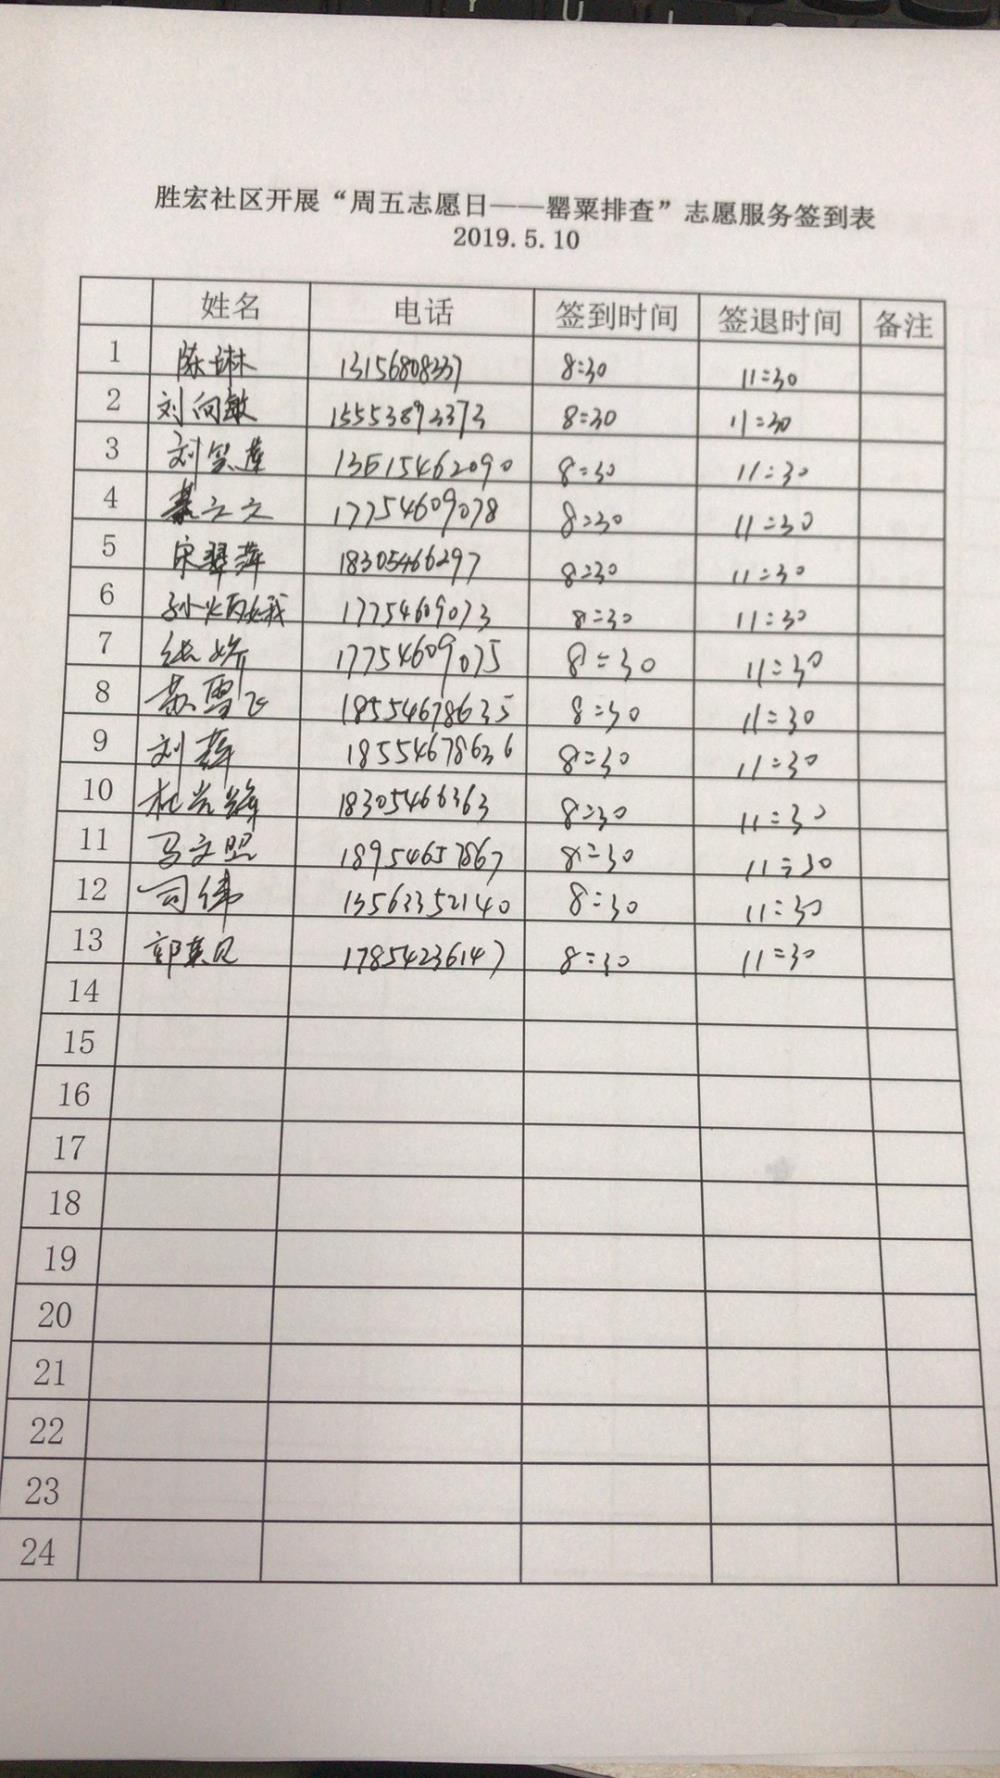 胜宏社区开展“周五志愿日——罂粟排查”志愿服务签到表
2019.5.10
姓名 电话 签到时间 签退时间 备注
1 陈琳 13156808337 8:30 11:30
2 刘向敏 15553893373 8:30 11:30
3 刘笑莲 13615462090 8:30 11:30
4 綦文文 17754609078 8:30 11:30
5 宋翠萍 18305466297 8:30 11:30
6 17754609073 8:30 11:30
7 张娇 17754609075 8:30 11:30
8 苏雪飞 18554678635 8:30 11:30
9 刘萍 18554678636 8:30 11:30
10 18305466363 8:30 11:30
11 马文照 18954657867 8:30 11:30
12 司伟 13563352140 8:30 11:30
13 郭英凡 17854236147 8:30 11:30
14
15
16
17
18
19
20
21
22
23
24